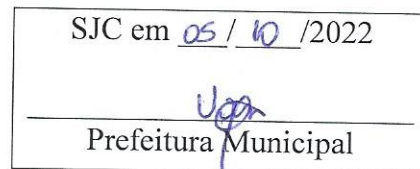 SJC em 05/ 10 /2022
Prefeitura Municipal